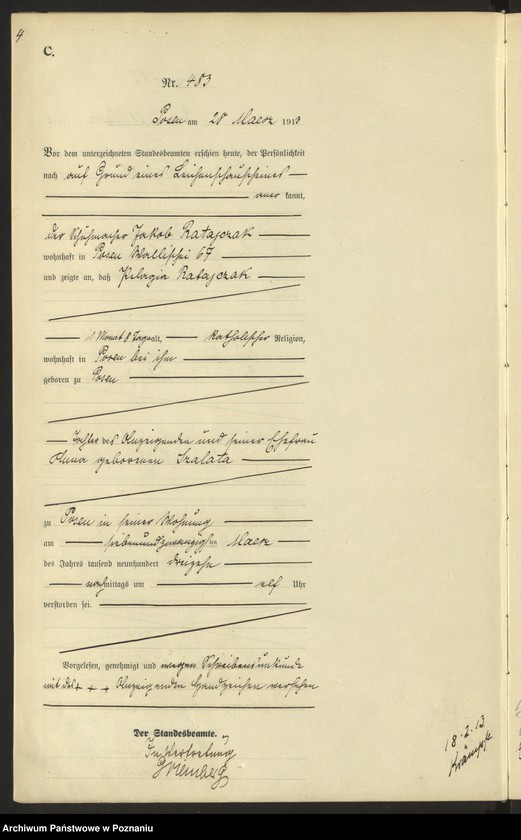 4
C.
Nr. 483
Posen am 28 Maerz 1913
Vor dem unterzeichneten Standesbeamten erschien heute, der Persönlichkeit
nach auf Grund eines Leichenschauscheines
aner kannt,
der Schuhmacher Jakob Ratajczak
wohnhaft in Posen Wallischei 67
und zeigte an, daß Pelagia Ratajczak
1 Monat 8 Tage alt, katholischer Religion,
wohnhaft in Posen bei ihm
geboren zu Posen
Tochter des Anzeigenden und seiner Ehefrau
Anna geborenen Szalata
zu Posen in seiner Wohnung
am siebenundzwanzigsten Maerz
des Jahres tausend neunhundert dreizehn
nachmittags um elf Uhr
verstorben sei.
Vorgelesen, genehmigt und wegen Schreibensunkunde
mit des + + + Anzeigenden Handzeichen versehen
Der Standesbeamte.
In Vertretung
18.2.13
Krämpfe
Archiwum Państwowe w Poznaniu